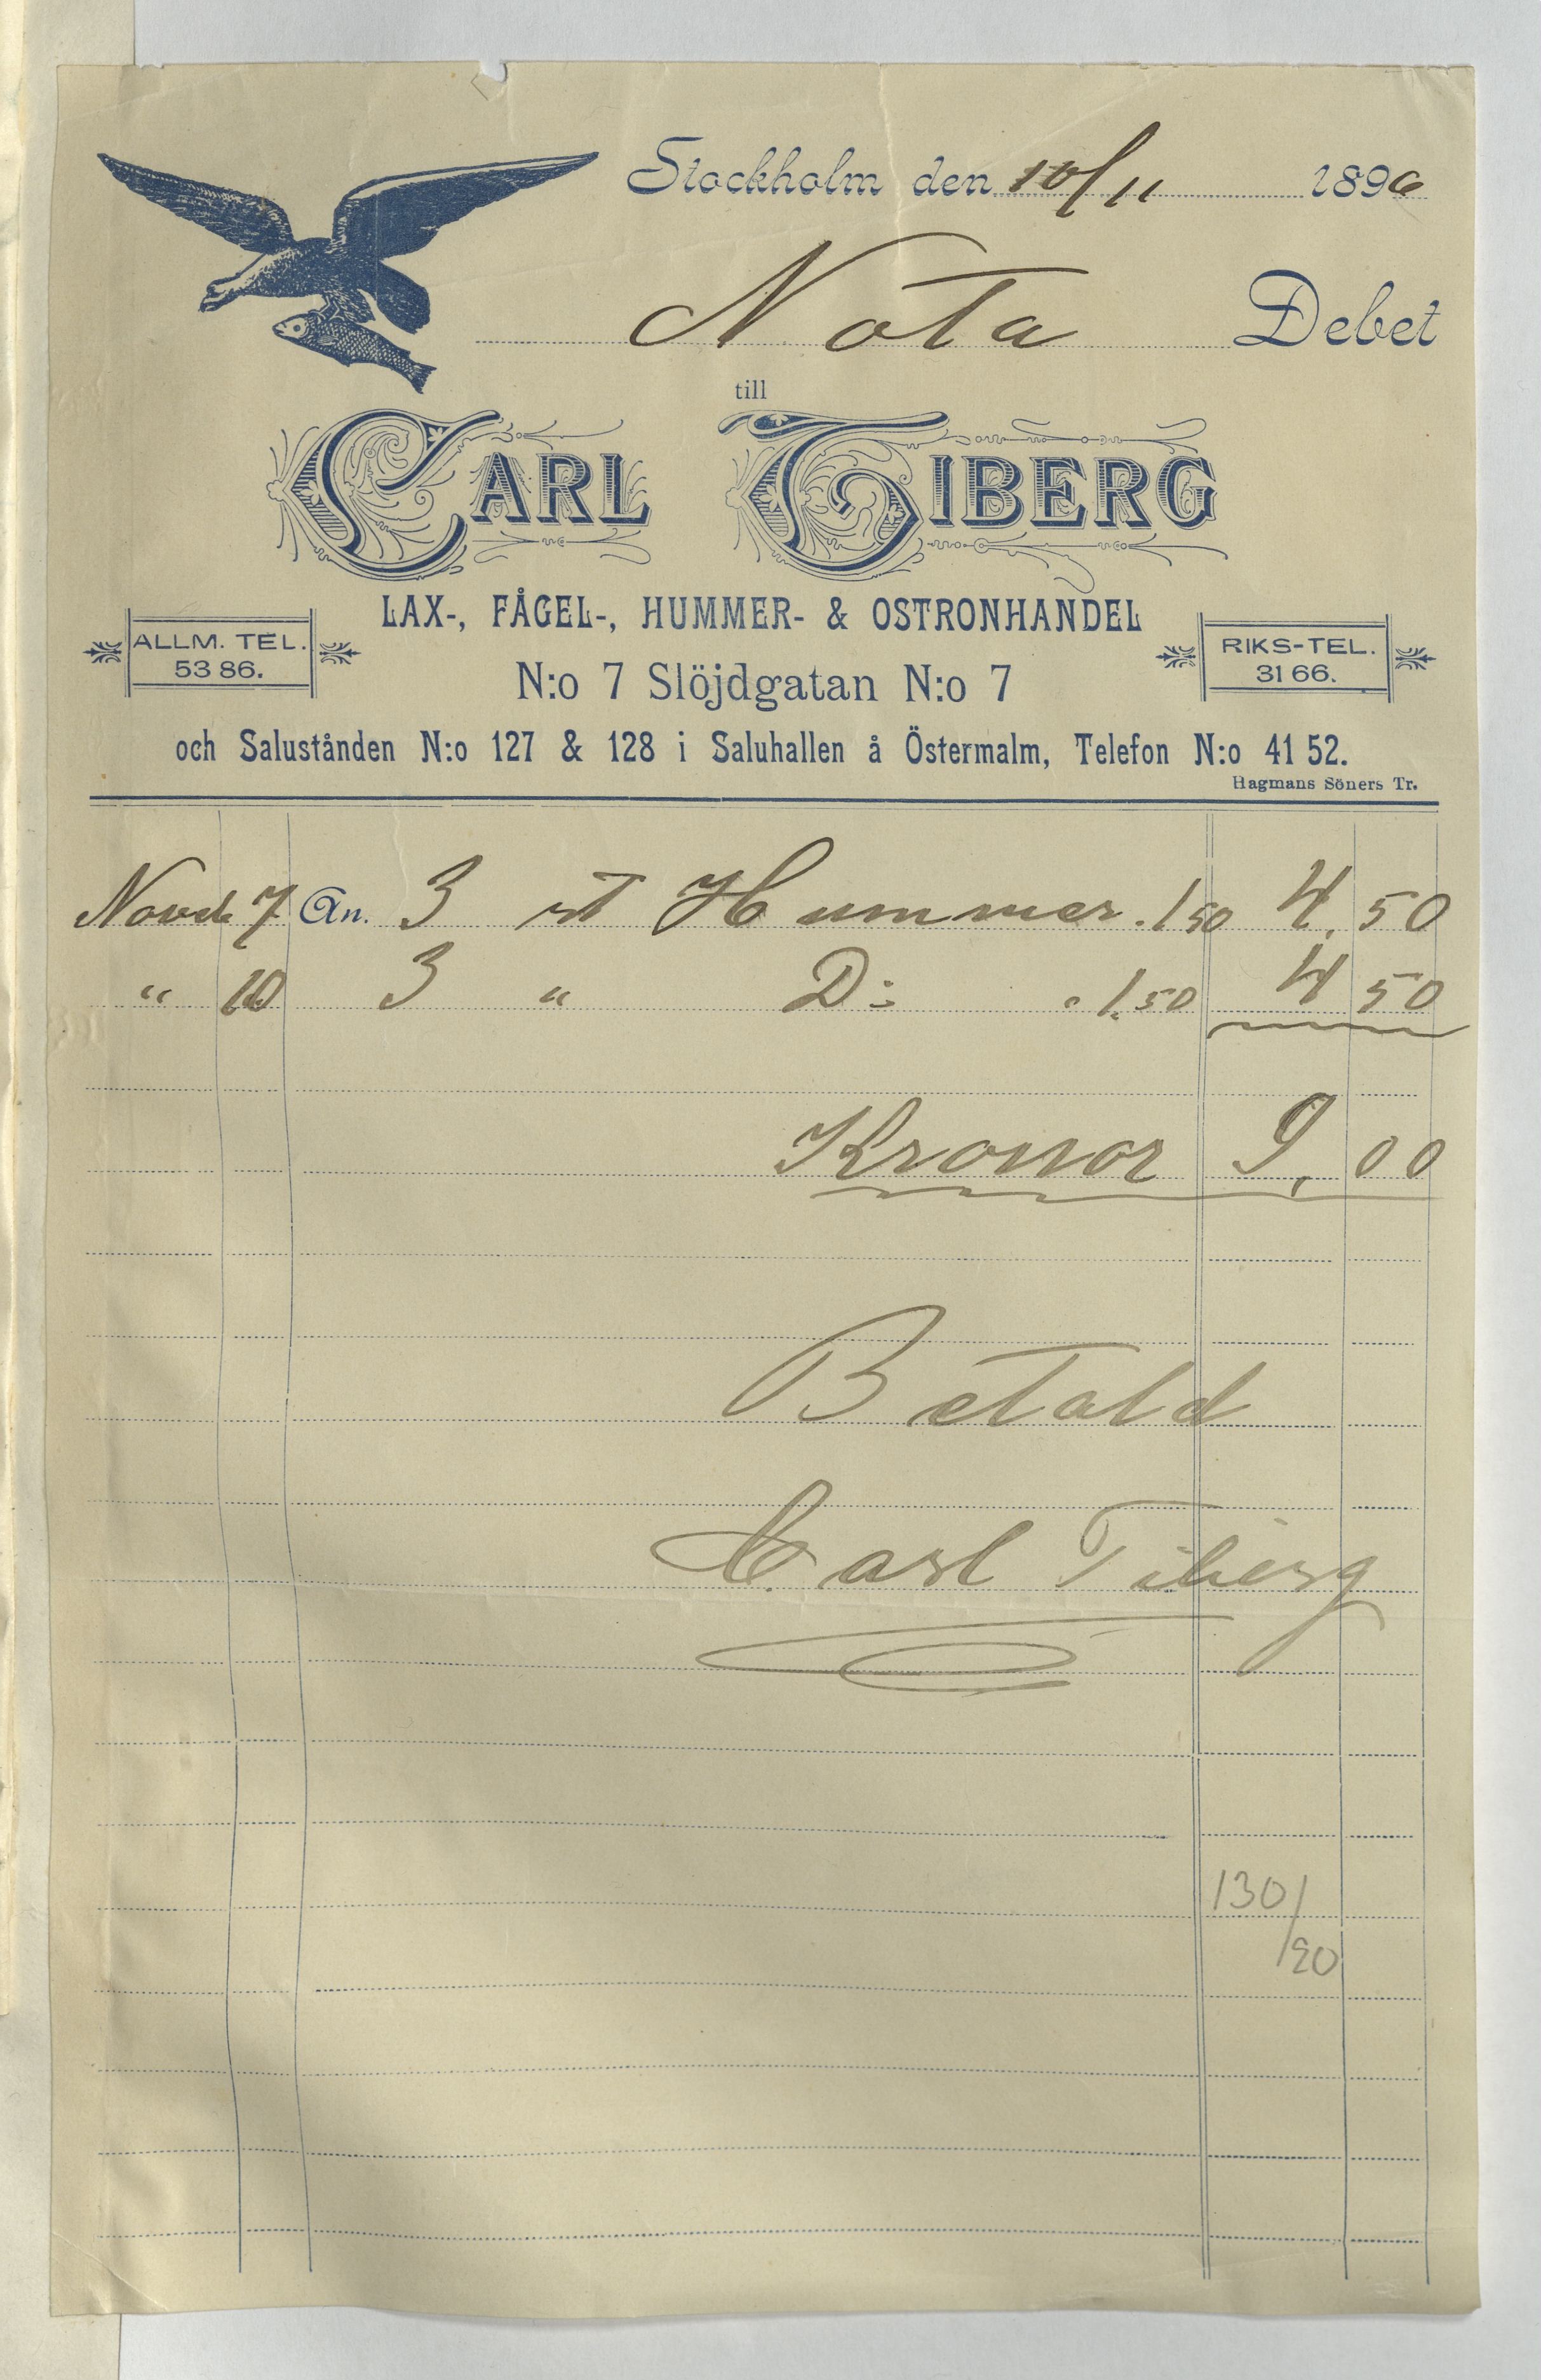 Stockholm den 10/11 1896
Nota Debet
till
CARL TIBERG
LAX-, FÅGEL-, HUMMER- & OSTRONHANDEL
ALLM. TEL.
53 86.
RIKS-TEL.
31 66.
N:o 7 Slöjdgatan N:o 7
och Salustånden N:o 127 & 128 i Saluhallen å Östermalm, Telefon N:o 41 52.
Hagmans Söners Tr.
Novb 7 An. 3 st Hummer . 1 50 4. 50
" 10 3 " D:o " 1.50 4 50
Kronor 9, 00
Betald
Carl Tiberg
130/